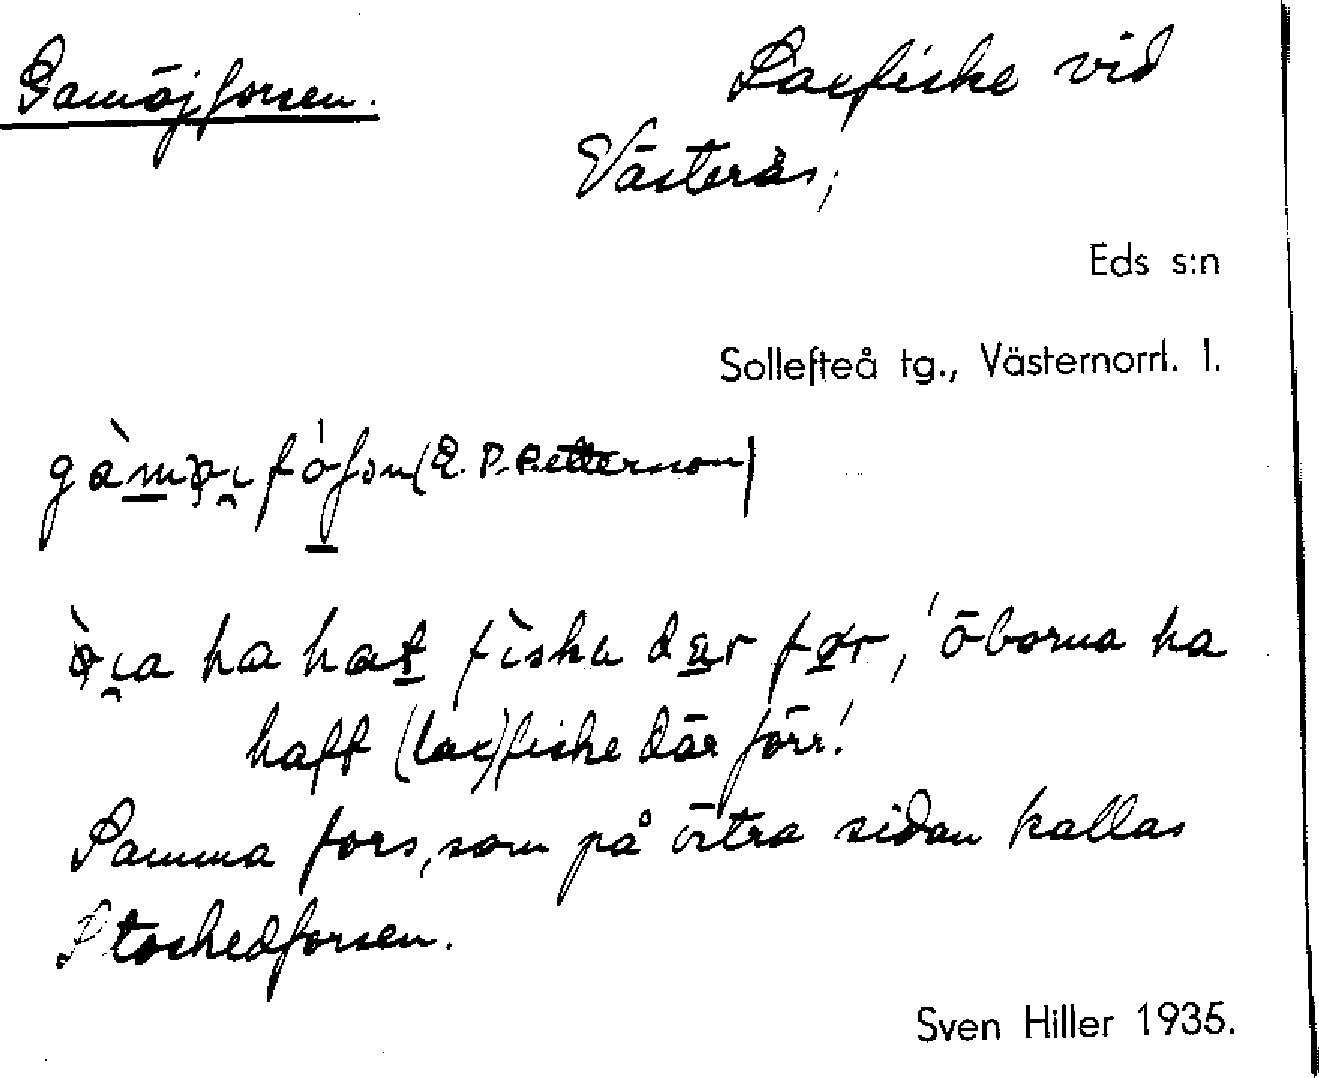 Gamöjforsen.
Laxfiske vid
Västerås;
Eds s:n
Sollefteå tg., Västernorrl. l.
(E. P. Petterson)
ha hat fiska där før, 'öborna ha
haft (lax)fiske där förr.'
Samma fors, som på östra sidan kallas
Stockedforsen.
Sven Hiller 1935.